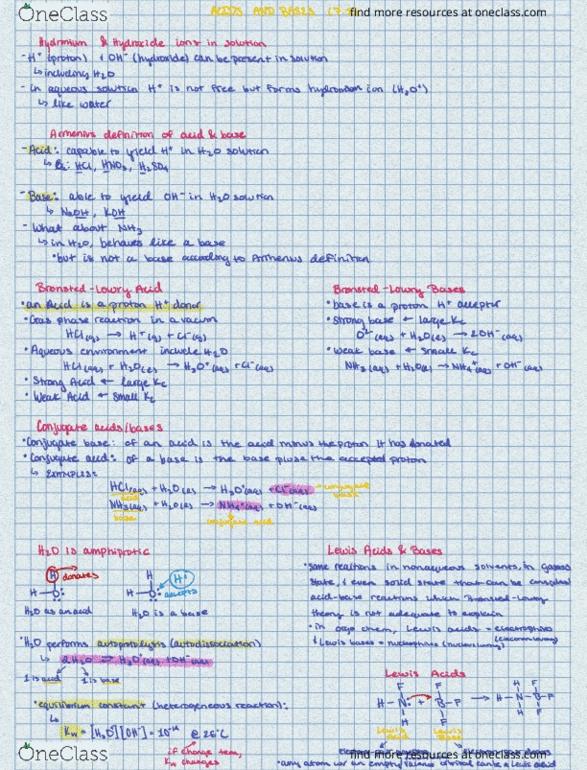 OneClass
ACIDS AND BASES (7.
find more resources at oneclass.com
Hydronium & Hydroxide ions in solution
- H⁺ (proton) & OH⁻ (hydroxide) can be present in solution
↳ including H₂O
- in aqueous solution H⁺ is not free but forms hydronium ion (H₃O⁺)
↳ like water
Arrhenius definition of acid & base
- Acid: capable to yield H⁺ in H₂O solution
↳ Ex: HCl, HNO₃, H₂SO₄
- Base: able to yield OH⁻ in H₂O solution
↳ NaOH, KOH
- What about NH₃
↳ in H₂O, behaves like a base
*but is not a base according to Arrhenius definition
Bronsted-Lowry Acid
• an Acid is a proton H⁺ donor
• Gas phase reaction in a vacum
HCl(g) → H⁺(g) + Cl⁻(g)
• Aqueous environment include H₂O
HCl(aq) + H₂O(l) → H₃O⁺(aq) + Cl⁻(aq)
• Strong Acid ← large Kc
• Weak Acid ← small Kc
Bronsted-Lowry Bases
• base is a proton H⁺ acceptor
• Strong base ← large Kc
O²⁻(aq) + H₂O(l) → 2OH⁻(aq)
• Weak base ← small Kc
NH₃(aq) + H₂O(l) → NH₄⁺(aq) + OH⁻(aq)
Conjugate acids/bases
• Conjugate base: of an acid is the acid minus the proton it has donated
• Conjugate acid: of a base is the base pluse the accepted proton
↳ EXAMPLES:
HCl(aq) + H₂O(l) → H₃O⁺(aq) + Cl⁻(aq) → conjugate base
acid
NH₃(aq) + H₂O(l) → NH₄⁺(aq) + OH⁻(aq)
base
conjugate acid
H₂O is amphiprotic
H donates
H-O:
H₂O as an acid
H
H⁺
accepts
H-O:
H₂O is a base
*H₂O performs autoprotolysis (autodissociation)
↳ 2H₂O ⇌ H₃O⁺(aq) + OH⁻(aq)
1 is acid
1 is base
*equilibrium constant (heterogeneous reaction):
↳
Kw = [H₃O][OH⁻] = 10⁻¹⁴ @ 25°C
if change tem,
Kw changes
Lewis Acids & Bases
• some reactions in nonaqueous solvents, in gaseous
state, & even solid state that can be considered
acid-base reactions which Bronsted-Lowry
theory is not adequate to explain
• in orgo chem, Lewis acids = electrophiles
& Lewis bases = nucleophiles
Lewis Acids
F F H F
H-N: + B-F → H-N-B-F
H F H F
Lewis Acid
Lewis Base
OneClass
find more resources at oneclass.com
*any atom w/ an empty valence orbital can be a lewis acid